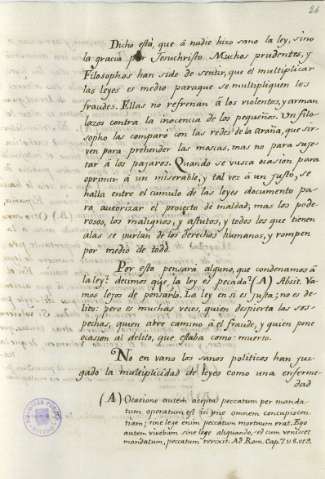 26
Dicho está, que á nadie hizo sano la ley, sino
la gracia por Jesuchristo. Muchos prudentes, y
Filosophos han sido de sentir, que el multiplicar
las leyes es medio paraque se multipliquen los
fraudes. Ellas no refrenan á los violentos, y arman
lazos contra la inocencia de los pequeños. Un filo-
sopho las comparó con las redes de la araña, que sir-
ven para prehender las moscas, mas no para suje-
tar á los pajaros. Quando se busca ocasion para
oprimir á un miserable, y tal vez á un justo, se
halla entre el cúmulo de las leyes documento pa-
ra autorizar el proyecto de maldad, mas los pode-
rosos, los malignos, y astutos, y todos los que tienen
alas se burlan de los derechos humanos, y rompen
por medio de todo.
Por esto pensará alguno, que condenamos á
la ley? decimos que la ley es pecado? (A) Absit. Va-
mos lejos de pensarlo. La ley en si es justa; no es de-
lito: pero es muchas veces, quien despierta las sos-
pechas, quien abre camino á el fraude, y quien pone
ocasion al delito, que estaba como muerto.
No en vano los sanos politicos han juz-
gado la multiplicidad de leyes como una enferme-
dad
(A) Ocasione autem accepta peccatum per manda-
tum operatum est in me omnem concupiscen-
tiam; sine lege enim peccatum mortuum erat. Ego
autem vivebam sine lege aliquando, sed cum venisset
mandatum, peccatum revixit. Ad Rom. Cap. 7. v. 8. et 9.